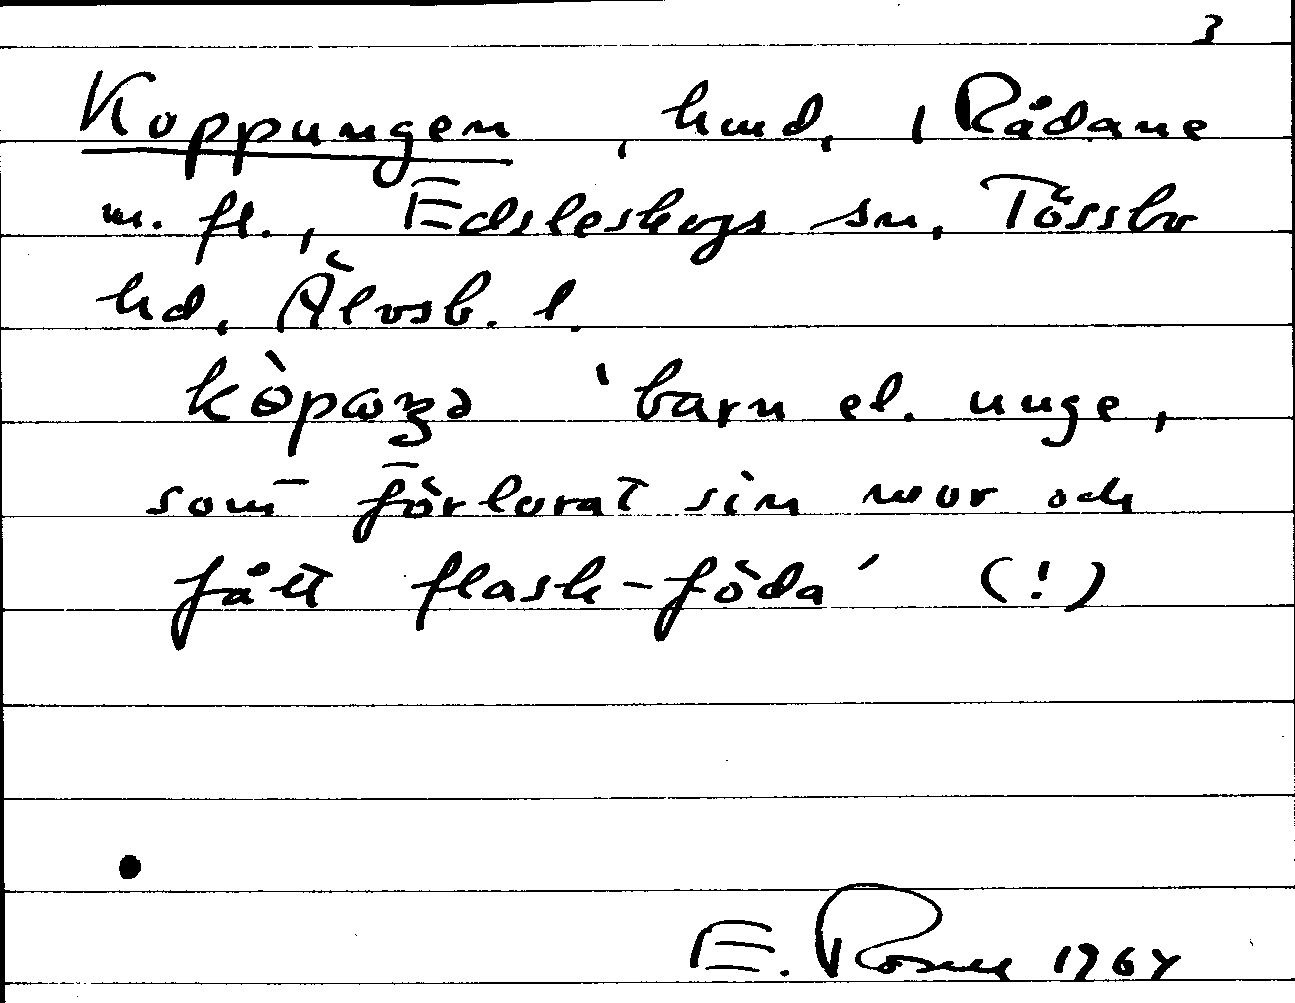 3
Koppungen, hmd, 1 Rådane
m. fl., Edsleskogs sn, Tössbo
hd, Älvsb. l.
'barn el. unge,
som förlorat sin mor och
fått flask-föda' (!)
E. 1967